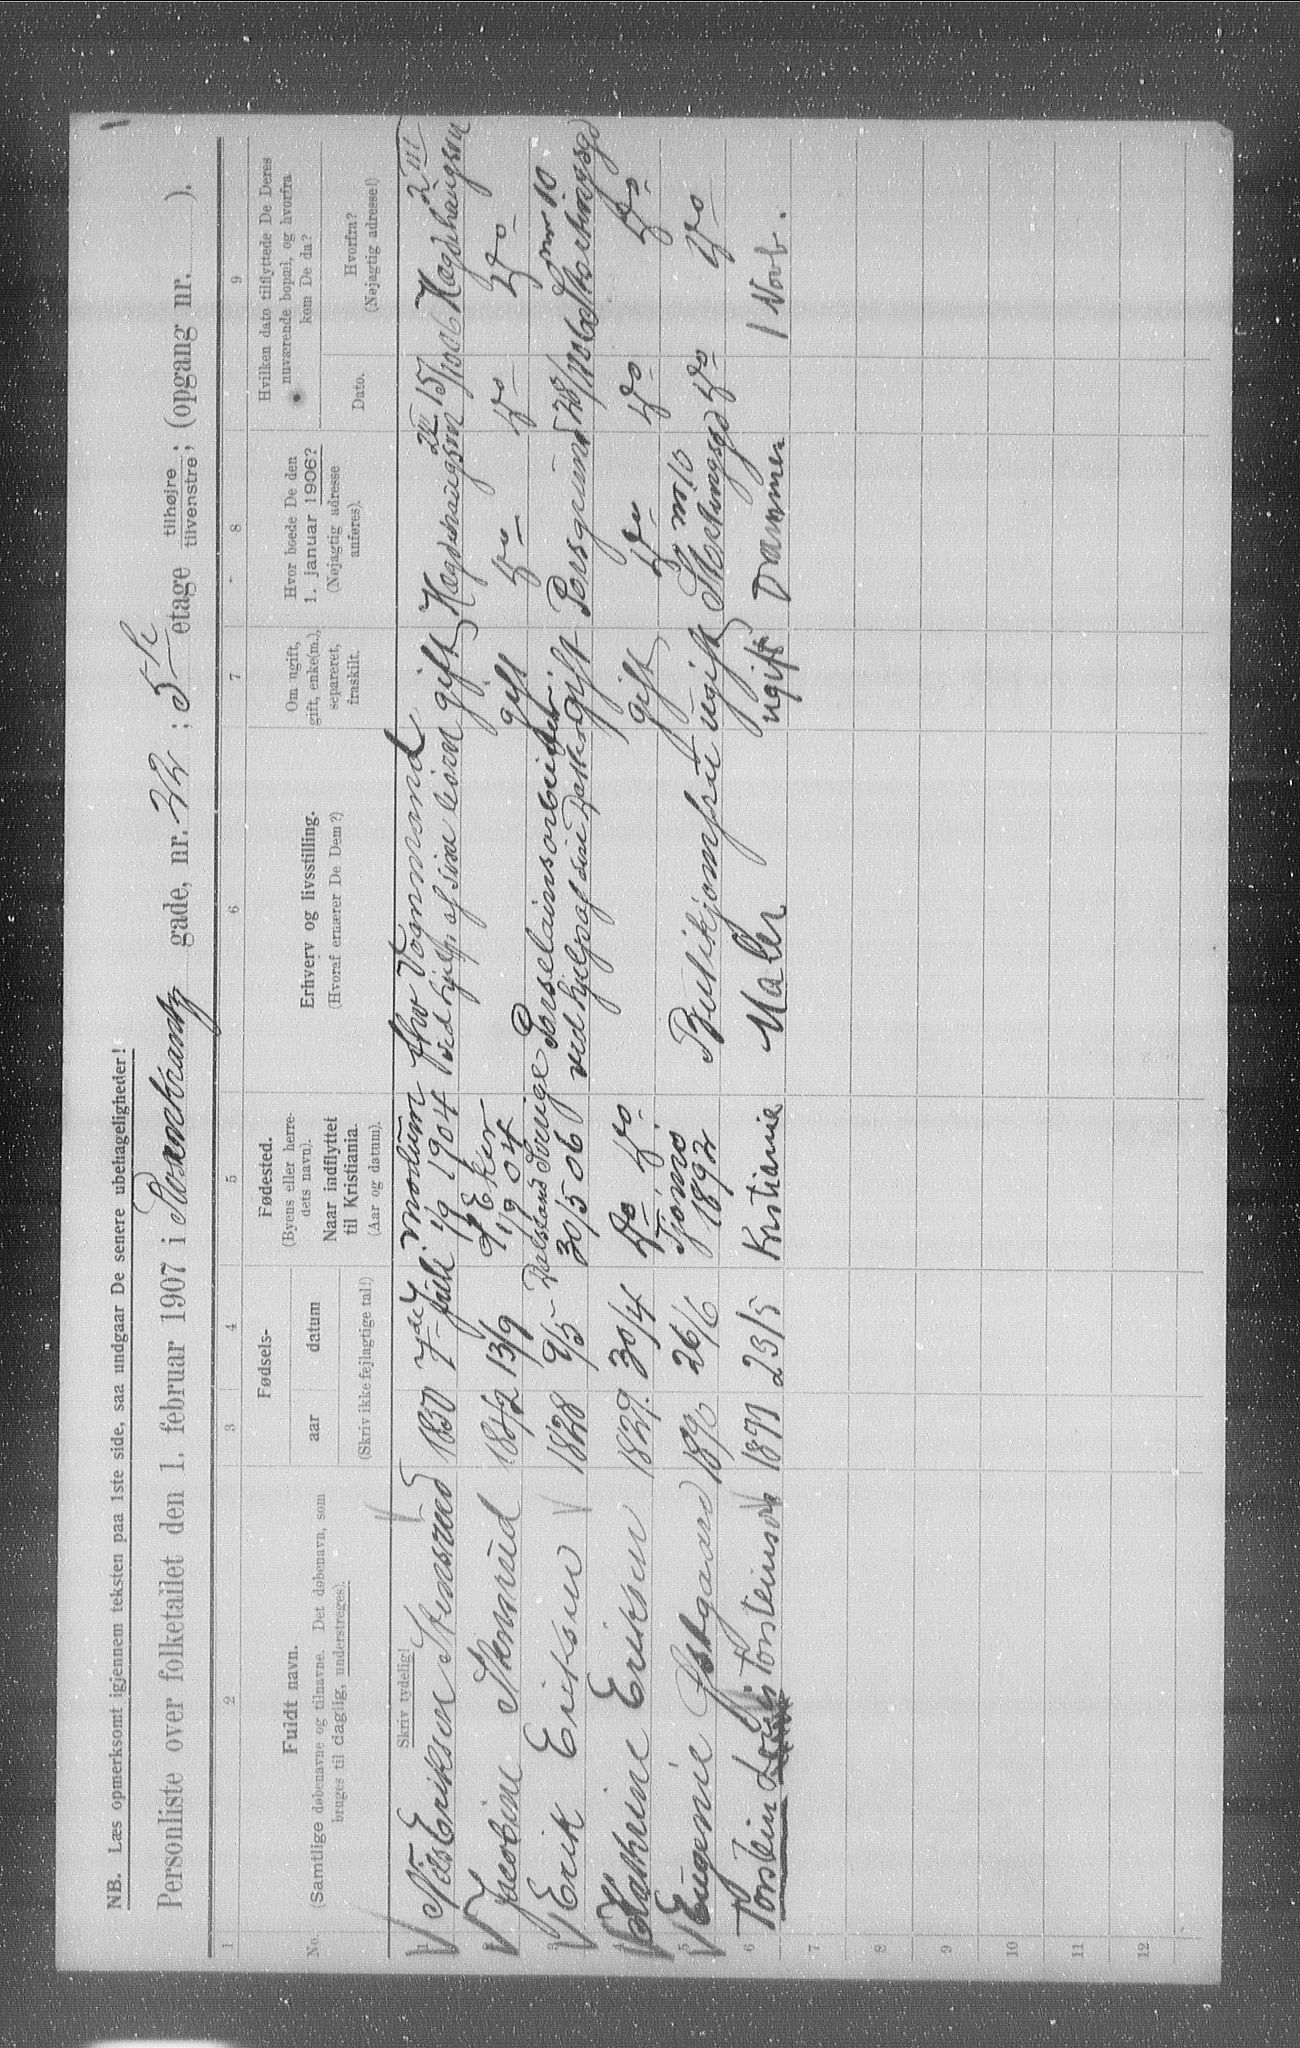 NB. Læs opmerksomt igjennem teksten paa 1ste side, saa undgaar De senere ubehageligheder!
Personliste over folketallet den 1. februar 1907 i Rosenkrantz gade, nr. 22 ; 5te etage tilhøjre tilvenstre ; (opgang nr. ).
1 2 3 4 5 6 7 8 9
No.
Fuldt navn.
(Samtlige døbenavne og tilnavne. Det døbenavn, som
bruges til daglig, understreges).
Skriv tydelig!
Fødsels-
aar datum
(Skriv ikke fejlagtige tal!)
Fødested.
(Byens eller herre-
dets navn).
Naar indflyttet
til Kristiania.
(Aar og datum).
Erhverv og livsstilling.
(Hvoraf ernærer De Dem?)
Om ugift,
gift, enke(m.),
separeret,
fraskilt.
Hvor boede De den
1. januar 1906?
(Nøjagtig adresse
anføres).
Hvilken dato tilflyttede De Deres
nuværende bopæl, og hvorfra
kom De da?
Dato.
Hvorfra?
(Nøjagtig adresse!)
1 Nils Eriksen Stensrud 1850 7de Juli Modum 1/9 1904 fhv Vognmand ved hjelp af sine børn gift Hægdehaugsvn 2 III 15/10 06 Hægdehaugsvn 2 III
2 Jacobine Stensrud 1852 13/9 Eker 1/9 04 gift Do Do Do
3 Erik Eriksen 1828 9/5 Dalsland Sverige 30/5 06 Porselainsarbeider ved hjelp af sine Døttre gift Porsgrund 28/10 06 Stortingsgd no 10
4 Kathrine Eriksen 1829 30/4 Do Do gift Do Do Do
5 Eugenie Østgaard 1890 26/6 Tjømø 1892 Butikjomfru ugift Stortingsgd 10 Do Do
6 Torstein Torsteinson 1877 23/5 Kristiania Maler ugift Drammen 1 Novb.
7
8
9
10
11
12